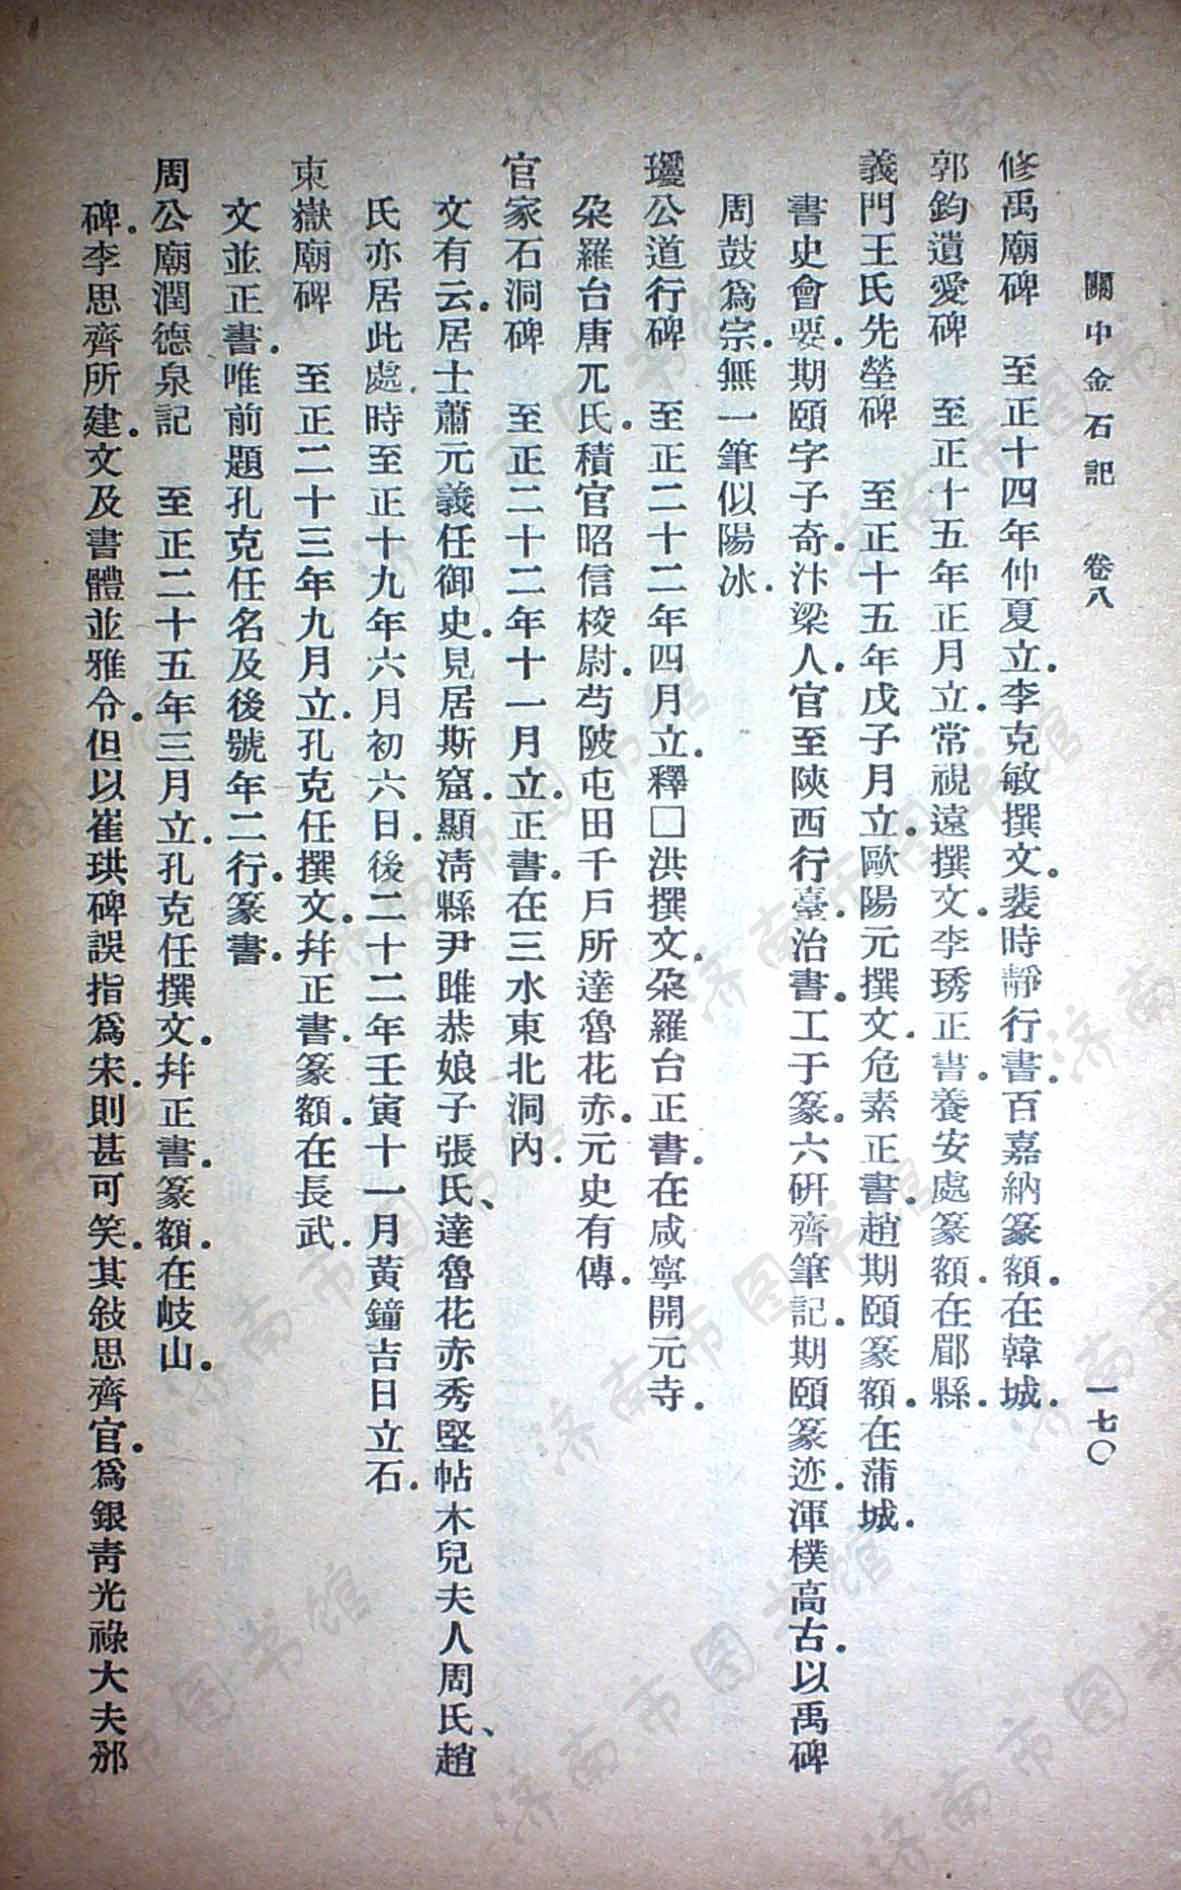 關中金石記　卷八　一七〇
修禹廟碑　至正十四年仲夏立.李克敏撰文.裴時靜行書.百嘉納篆額.在韓城.
郭鈞遺愛碑　至正十五年正月立.常視遠撰文.李琇正書.養安處篆額.在郿縣.
義門王氏先塋碑　至正十五年戊子月立.歐陽元撰文.危素正書.趙期頤篆額.在蒲城.
書史會要.期頤字子奇.汴梁人.官至陝西行臺.治書.工于篆.六硏齊筆記.期頤篆迹.渾樸高古.以禹碑
周鼓爲宗.無一筆似陽冰.
瓊公道行碑　至正二十二年四月立.釋□洪撰文.朶羅台正書.在咸寧開元寺.
朶羅台唐兀氏.積官昭信校尉.芍陂屯田千戶所達魯花赤.元史有傳.
官家石洞碑　至正二十二年十一月立.正書.在三水東北洞內.
文有云.居士蕭元義任御史.見居斯窟.顯淸縣尹雎恭娘子張氏、達魯花赤秀堅帖木兒夫人周氏、趙
氏亦居此處.時至正十九年六月初六日.後二十二年壬寅十一月黃鐘吉日立石.
東嶽廟碑　至正二十三年九月立.孔克任撰文.幷正書.篆額.在長武.
文並正書.唯前題孔克任名及後號年二行.篆書.
周公廟潤德泉記　至正二十五年三月立.孔克任撰文.幷正書.篆額.在岐山.
碑.李思齊所建.文及書體並雅令.但以崔珙碑誤指爲宋.則甚可笑.其敍思齊官.爲銀靑光祿大夫邠